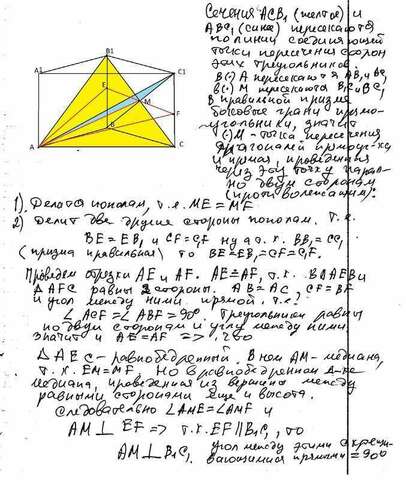 B1
A1
C1
E
M
F
B
A
C
Сечения ACB₁ (желтое) и
ABC₁ (синее) пересекаются
по линии соединяющей
точки пересечения сторон
этих треугольников.
В(·) A пересекаются AB₁ и AC₁
в(·) M пересекаются B₁C и BC₁
В правильной призме
боковые грани прямо-
угольники, значит
(·)M - точка пересечения
диагоналей прямоуг-ка
и прямая, проведенная
через эту точку парал-
но двум сторонам
(противолежащим):
1). Делится пополам, т.е. ME = MF
2) Делит две другие стороны пополам. т.е.
BE = EB₁ и CF = C₁F ну а т.к. BB₁ = CC₁
(призма правильная) то BE = EB₁ = CF = C₁F.
Проведем отрезки AE и AF. AE = AF, т.к. В ΔAEB и
ΔAFC равны 2 стороны. AB = AC, CF = BF
и угол между ними прямой, т.е.
∠ACF = ∠ABF = 90°. Треугольники равны
по двум сторонам и углу между ними.
значит и AE = AF =>
ΔAEC - равнобедренный. В нем AM - медиана,
т.к. EM = MF, но в равнобедренном Δ-ке
медиана, проведенная из вершины между
равными сторонами еще и высота.
Следовательно ∠AME = ∠AMF и
AM ⊥ EF => т.к. EF ∥ B₁C₁, то
AM ⊥ B₁C₁. угол между этими скрещи-
вающимися прямыми = 90°